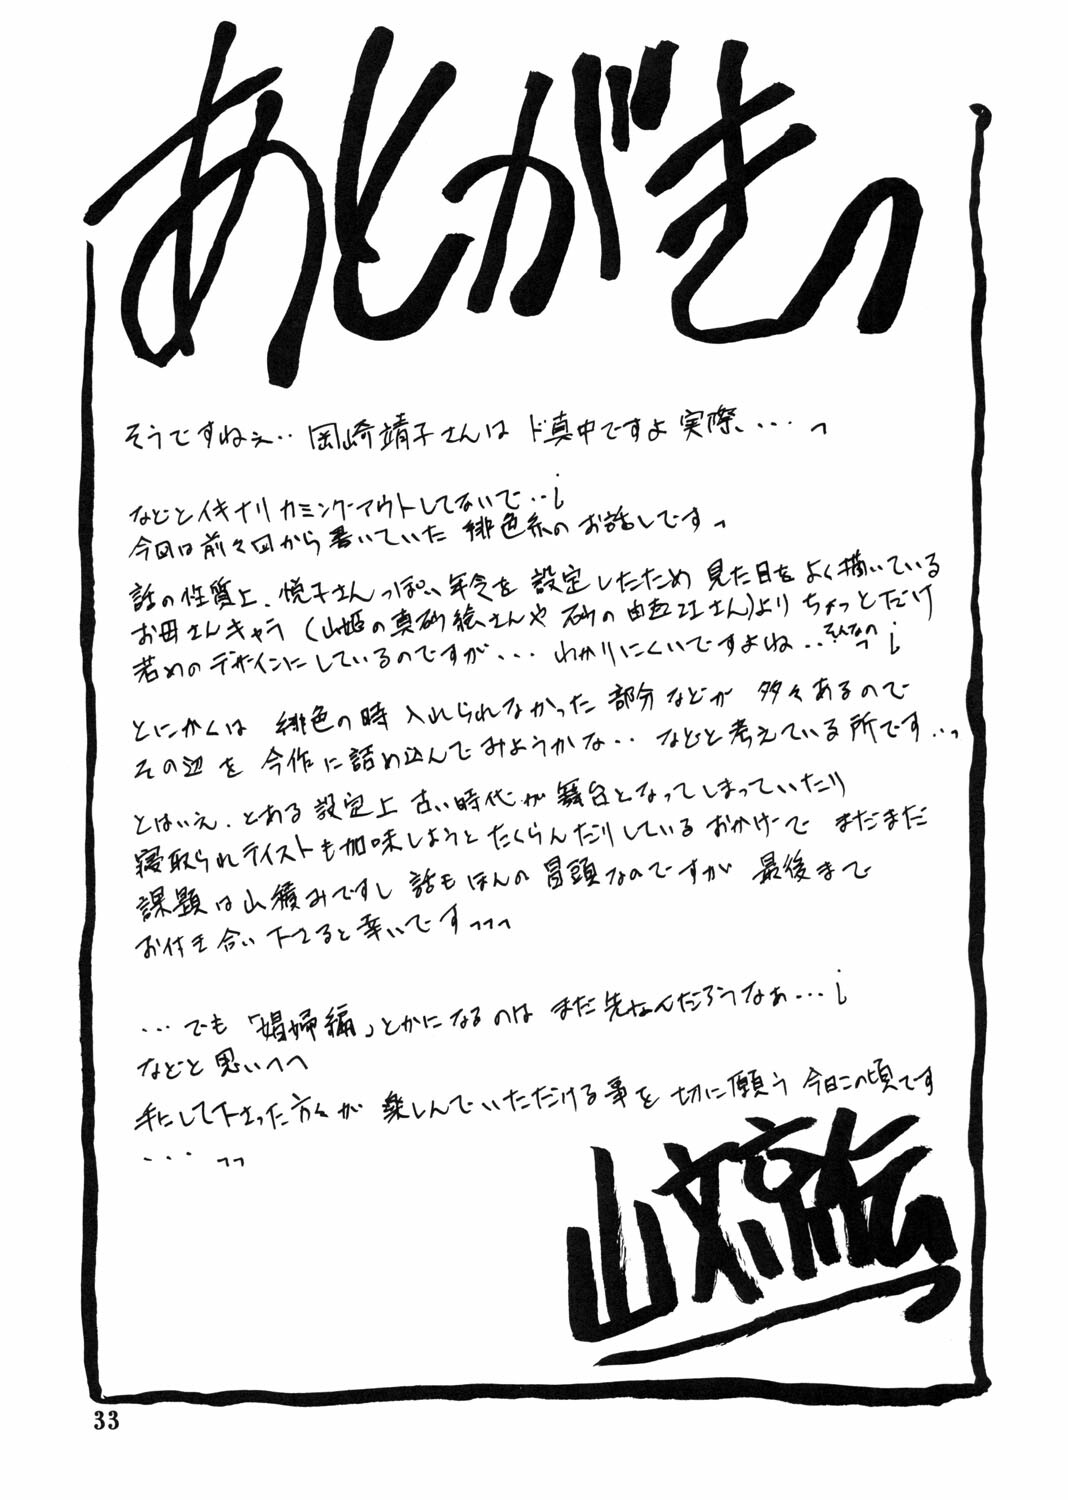 あとがきっ
そうですねぇ‥岡崎靖子さんは ド真中ですよ実際、‥‥っ
などとイキナリ カミングアウトしてないで‥¡
今回は前々回から書いていた 緋色系のお話しですっ
話の性質上、悦子さんっぽい年令を 設定したため 見た目をよく描いている
お母さんキャラ(山姫の真砂絵さんや 砂の さん)より ちょっとだけ
若めのデザインにしているのですが‥‥ わかりにくいですよね‥そんなのっ¡
とにかくは 緋色の時 入れられなかった 部分などが 多々あるので
その辺を 今作に詰め込んでみようかな‥ などと考えている所です‥っ
とはいえ、とある設定上 古い時代が 舞台となってしまっていたり
寝取られテイストも加味しようとたくらんだりしているおかげで まだまだ
課題は山積みですし 話もほんの冒頭なのですが 最後まで
お付き合い下さると幸いですっっっ
‥‥でも「娼婦編」とかになるのは まだ先なんだろうなぁ‥‥¡
などと思いつつ
手にして下さった方々が 楽しんでいただける事を 切に願う 今日この頃です
‥‥っっ
山文京伝
33